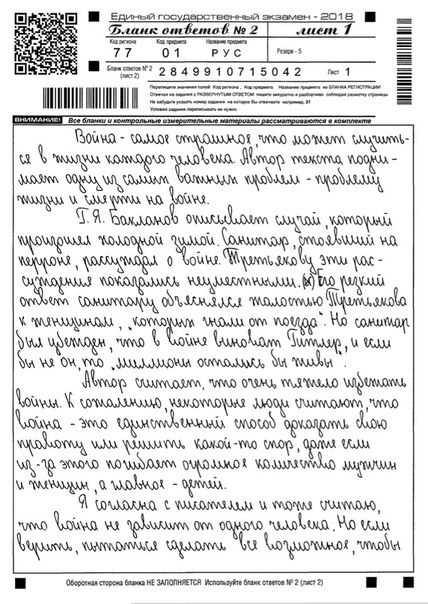 Единый государственный экзамен - 2018
Бланк ответов № 2 лист 1
Код региона Код предмета Название предмета
77 01 РУС Резерв - 5
Бланк ответов № 2 (лист 2) 2849910715042 Лист 1
Перепишите значения полей Код региона, Код предмета Название предмета из БЛАНКА РЕГИСТРАЦИИ
Отвечая на задания с РАЗВЕРНУТЫМ ОТВЕТОМ пишите аккуратно и разборчиво соблюдая разметку страницы
Не забудьте указать номер задания на которое Вы отвечаете например, 31
Условия задания переписывать не нужно
ВНИМАНИЕ! Все бланки и контрольные измерительные материалы рассматриваются в комплекте
Война - самое страшное, что может случить-
ся в жизни каждого человека. Автор текста подни-
мает одну из самых важных проблем - проблему
жизни и смерти на войне.
Г.Я. Бакланов описывает случай, который
произошел холодной зимой. Санитар, стоявший на
перроне, рассуждал о войне. Третьякову эти рас-
суждения показались неуместными. Его резкий
ответ санитару объяснялся жалостью Третьякова
к женщинам, „которых гнали от поезда". Но санитар
был убежден, что в войне виноват Гитлер, и если
бы не он, то „миллионы остались бы живы".
Автор считает, что очень тяжело избежать
войны. К сожалению, некоторые люди считают, что
война - это единственный способ доказать свою
правоту или решить какой-то спор, даже если
из-за этого погибает огромное количество мужчин
и женщин, а главное - детей.
Я согласна с писателем и тоже считаю,
что война не зависит от одного человека. Но если
верить, пытаться сделать все возможное, чтобы
Оборотная сторона бланка НЕ ЗАПОЛНЯЕТСЯ Используйте бланк ответов № 2 (лист 2)